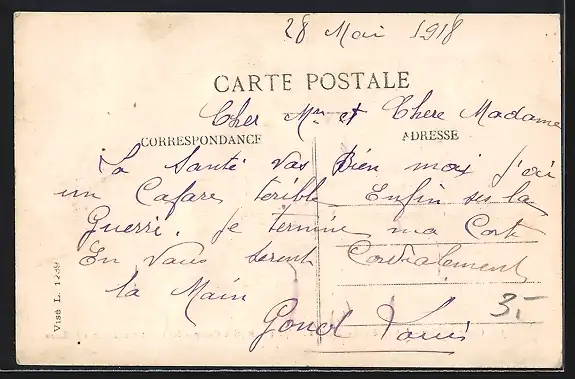 28 Mai 1918
CARTE POSTALE
Cher Mr et Chere Madame
CORRESPONDANCE ADRESSE
La Santé vas Bien moi j'ai
un Cafare terible Enfin ses la
Guerre. Je termine ma Carte
En vous serent Cordialement
la Main
Louis
3.-
Visé L. 1239